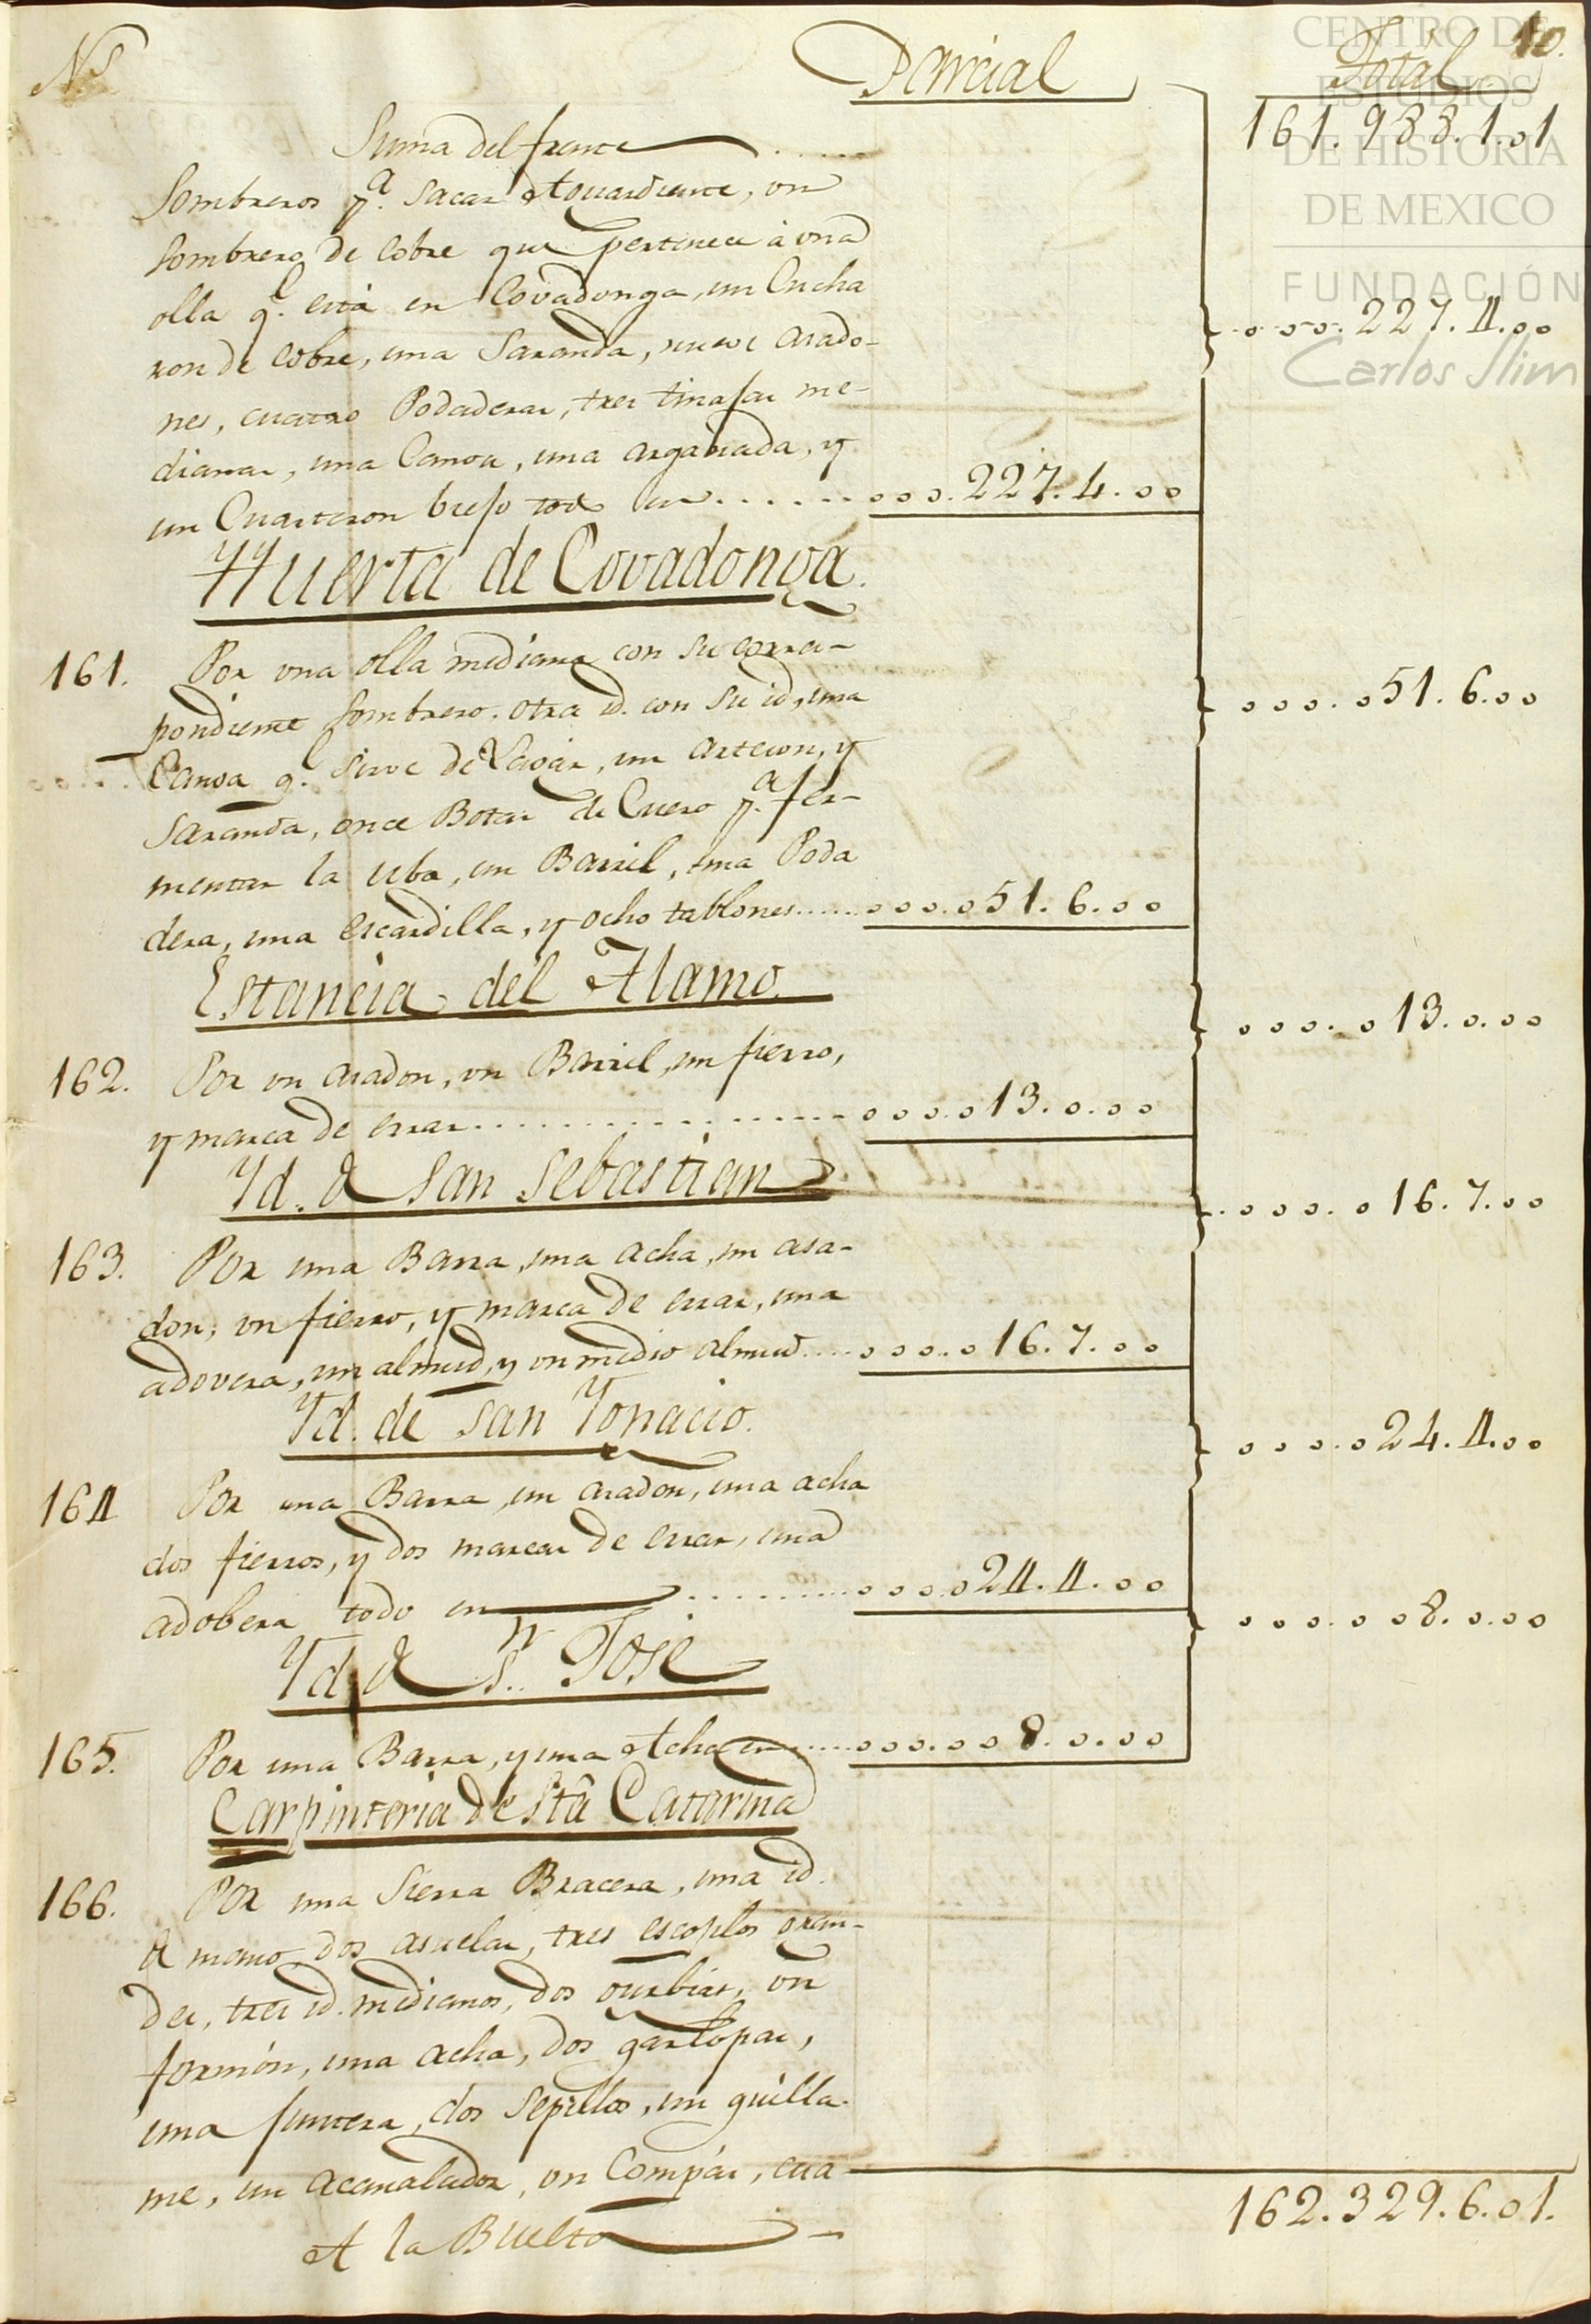 N.s Parcial Total 10.
Suma del frente ...... 161.988.1.01
Sombreros p.a sacar Aguardiente, un
sombrero de cobre que pertenece à una
olla q.e está en Covadonga, un Cucha
ron de cobre, una Saranda, nueve asado- ....227.4.00
nes, cuatro Podaderas, tres tinajas me-
dianas, una Canoa, una arganada, y
un Cuarteron biejo todo en......000.227.4.00
Huerta de Covadonga.
161. Por una olla mediana con su corres-
pondiente sombrero. otra id. con su id, una 000.051.6.00
Canoa q.e sirve de Lagar, un arteson, y
Saranda, once Botas de Cuero p.a fer-
mentar la uba, un Barril, una Poda
dera, una escardilla, y ocho tablones......000.051.6.00
Estancia del Alamo
000.013.0.00
162. Por un asadon, un Barril, un fierro,
y marca de errar..................000.013.0.00
Yd. de San Sebastian
.000.016.7.00
163. Por una Barra, una acha, un asa-
don, un fierro, y marca de errar, una
adovera, un almud, y un medio almud....000.016.7.00
Yd. de San Ygnacio.
000.024.4.00
164 Por una Barra, un asadon, una acha
dos fierros, y dos marcas de errar, una
adobera todo en .........000.024.4.00
000.008.0.00
Yd. de S.n José
165. Por una Barra, y una Acha en......000.008.0.00
Carpinteria de Sta Catarina
166. Por una Sierra Bracera, una id.
de mano, dos asuelas, tres escoplos gran-
des, tres id. medianos, dos gurbias, un
formón, una acha, dos garlopas,
una juntera, dos sepillos, un guilla-
me, un acanalador, un Compás, cua-
162.329.6.01.
A la Buelta
CENTRO DE
ESTUDIOS
DE HISTORIA
DE MEXICO
FUNDACIÓN
Carlos Slim